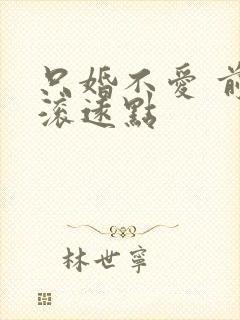 只婚不愛 前
滾遠點
林世寧